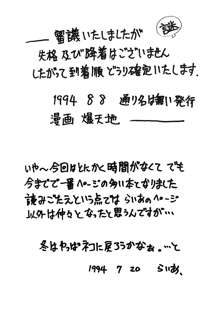 謎
審議いたしましたが
失格及び降着はございません
したがって到着順どうり確定いたします.
1994 8 8 通り名は無い発行
漫画 爆天地
いや〜今回はとにかく時間がなくて でも
今までで一番ページの多い本となりました
読みごたえという点では らいあのページ
以外は仲々となったと思うんですが…
冬はやっぱネコに戻ろうかなぁ。…と
1994 7 20 らいあ、